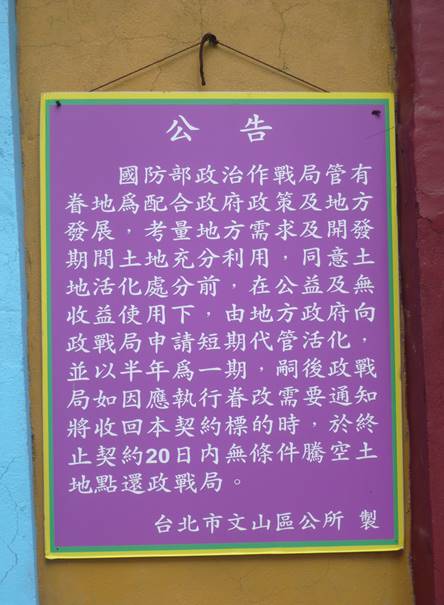 公告
國防部政治作戰局管有
眷地為配合政府政策及地方
發展，考量地方需求及開發
期間土地充分利用，同意土
地活化處分前，在公益及無
收益使用下，由地方政府向
政戰局申請短期代管活化，
並以半年為一期，嗣後政戰
局如因應執行眷改需要通知
將收回本契約標的時，於終
止契約20日內無條件騰空土
地點還政戰局。
台北市文山區公所 製